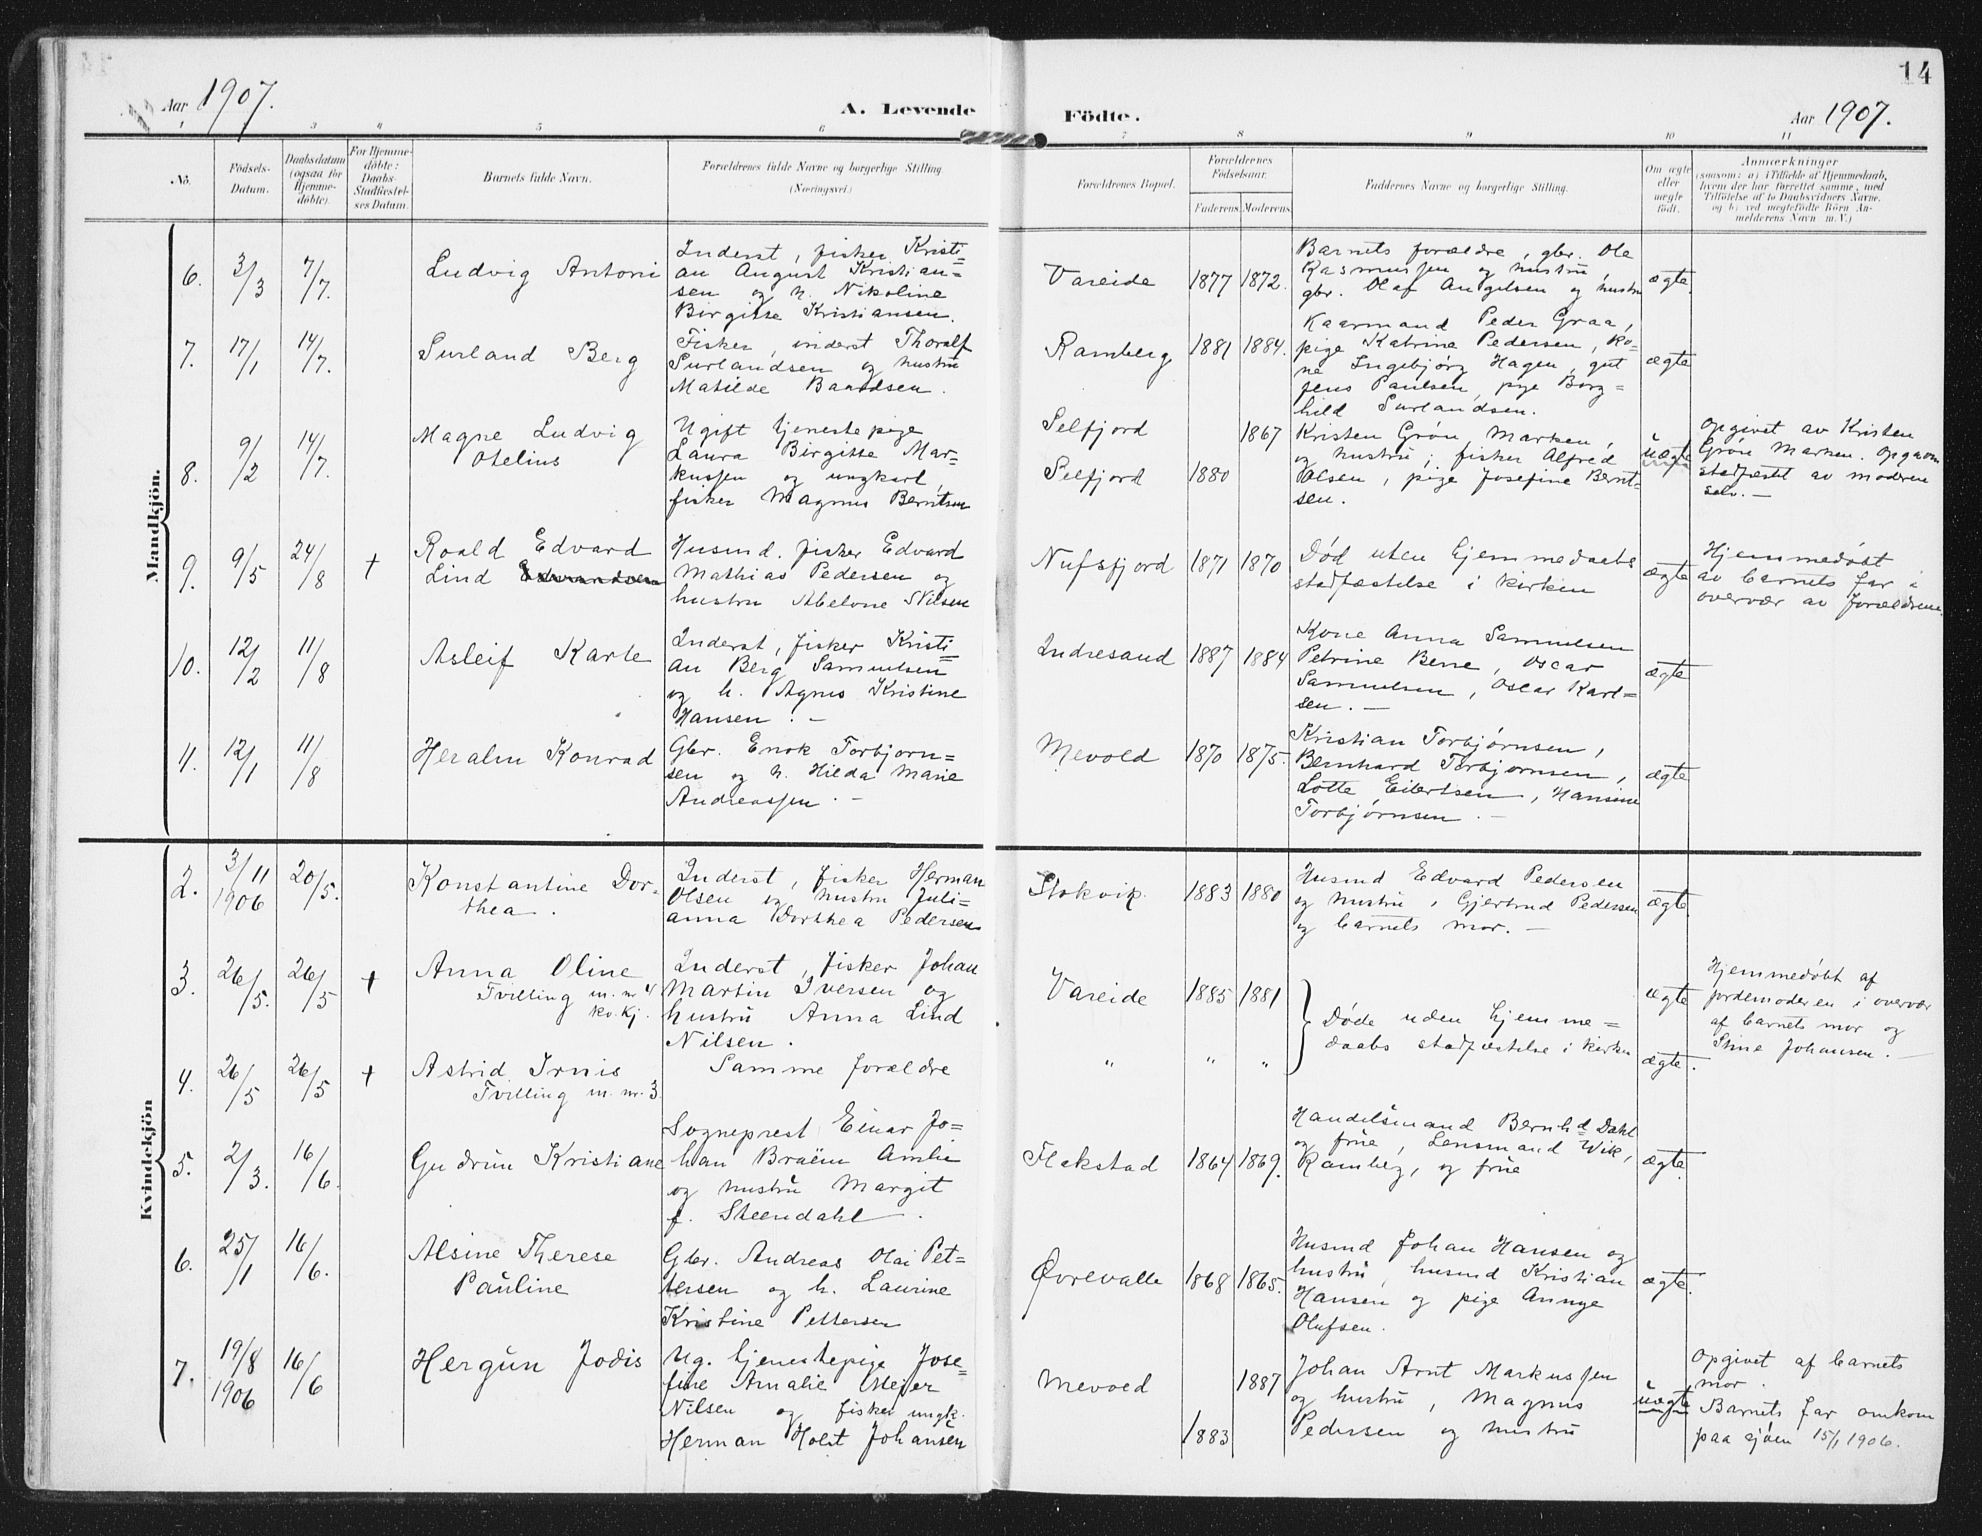 14
Aar 1907.
A. Levende
Födte.
Aar 1907.
1 3 4 5 6 7 8 9 10 11
No.
Födsels-
Datum.
Daabsdatum
(ogsaa for
Hjemme-
döbte).
For Hjemme-
döbte:
Daabs-
Stadfæstel-
ses Datum.
Barnets fulde Navn.
Forældrenes fulde Navne og borgerlige Stilling
(Næringsvei.)
Forældrenes Bopæl.
Forældrenes
Födselsaar.
Faderens Moderens
Faddernes Navne og borgerlige Stilling.
Om ægte
eller
uægte
födt.
Anmærkninger
(saasom: a) i Tilfælde af Hjemmedaab,
hvem der har forrettet samme, med
Tilföielse af to Daabsvidners Navne,
og b) ved uægtefödte Börn An-
melderens Navn m. V.)
Mandkjön.
6.
3/3
7/7.
Ludvig Antoni
Inderst, fisker Kristi=
an August Kristian=
sen og h. Nikoline
Birgitte Kristiansen.
Vareide
1877 1872.
Barnets forældre, gbr. Ole
Rasmussen og hustru,
gbr. Olaf Angelsen og hustru
ægte.
7.
17/1
14/7.
Surland Berg
Fisker, inderst Thoralf
Surlandsen og hustru
Matilde Baardsen.
Ramberg
1881 1884.
Kaarmand Peder Graa,
pige Katrine Pedersen, ko=
ne Ingebjørg Hagen, gut
Jens Paulsen, pige Borg=
hild Surlandsen.
ægte
8.
9/2
14/7.
Magne Ludvig
Otelius
Ugift tjenestepige
Laura Birgitte Mar=
kussen og ungkarl,
fisker Magnus Berntsen
Selfjord
Selfjord
1867
1880
Kristen Grøn, Marken,
og hustru; fisker Alfred
Olsen, pige Josefine Bernt=
sen.
uægte
Opgivet av Kristen
Grøn Marken. Opgaven
stadfæstet av moderen
selv. —
9.
9/5
24/8
+
Roald Edvard
Lind
Husmd. fisker Edvard
Mathias Pedersen og
hustru Abelone Nilsen
Nufsfjord
1871 1870
Død uten hjemmedaabs
stadfæstelse i kirken
ægte
Hjemmedøbt
av barnets far i
overvær av forældrene.
10.
12/2
11/8
Asleif Karle
Inderst, fisker Kristi=
an Berg Samuelsen
og h. Agnes Kristine
Hansen. —
Indresand
1887 1884
Kone Anna Samuelsen
Petrine Berre, Oscar
Samuelsen, Oscar Karl=
sen. —
ægte
11.
12/1
11/8
Heralm Konrad
Gbr. Enok Torbjørn=
sen og h. Hilda Marie
Andreassen. —
Mevold
1870 1875.
Kristian Torbjørnsen,
Bernhard Torbjørnsen,
Lotte Eilertsen, Hansine
Torbjørnsen. —
ægte
Kvindekjön
2.
3/11
1906
20/5.
Konstantine Dor-
thea.
Inderst, fisker Herman
Olsen og hustru Juli=
anna Dorthea Pedersen
Stokvik.
1883 1880
Husmd Edvard Pedersen
og hustru, Gjertrud Pedersen
og barnets mor. —
ægte.
3.
26/5.
26/5
+
Anna Oline
Tvilling m. nr 4
kv.kj.
Inderst, fisker Johan
Martin Iversen og
hustru Anna Lind
Nilsen.
Vareide
1885 1881
Døde uden hjemme=
daabs stadfæstelse i kirken
ægte
Hjemmedøbt af
jordemoderen i overvær
af barnets mor og
Stine Johansen. —
4.
26/5
26/5
+
Astrid Irnis
Tvilling m. nr. 3
Samme forældre
" " "
ægte.
5.
2/3.
16/6.
Gudrun Kristiane
Sogneprest Einar Jo=
han Braëm Amlie
og hustru Margit
f. Steendahl.
Flakstad
1864 1869.
Handelsmand Bernhd Dahl
og frue, Lensmand Wik,
Ramberg, og frue
ægte.
6.
25/1
16/6.
Alsine Therese
Pauline
Gbr. Andreas Olai Pet=
tersen og h. Laurine
Kristine Pettersen
Øvrevalle
1868 1865.
Husmd Johan Hansen og
hustru, husmd Kristian
Hansen og pige Annye
Olufsen.
ægte.
7.
19/8
1906
16/6
Hergun Jodis
Ug. tjenestepige Jose=
fine Amalie Meier
Nilsen og fisker ungk.
Herman Holst Johansen
Mevold
1887
1883
Johan Arnt Markussen
og hustru, Magnus
Pedersen og hustru
uægte
Opgivet af barnets
mor.
Barnets far omkom
paa sjøen 15/1 1906.